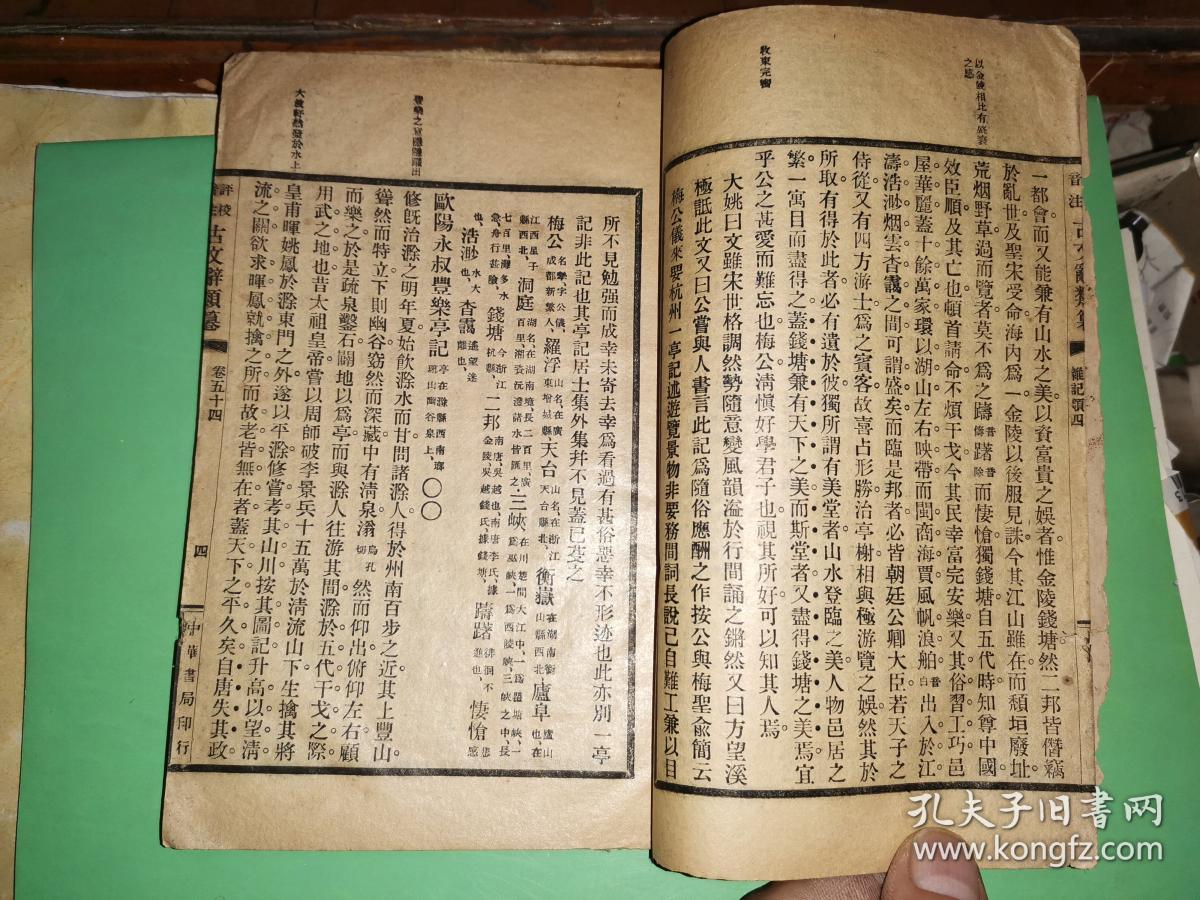 以金陵相比有盛衰
之感
收束完密
音注古文辭類纂
雜記類四
一都會而又能兼有山水之美以資富貴之娛者惟金陵錢塘然二邦皆僭竊
於亂世及聖宋受命海內爲一金陵以後服見誅今其江山雖在而頹垣廢址
荒烟野草過而覽者莫不爲之躊音儔躇音除而悽愴獨錢塘自五代時知尊中國
效臣順及其亡也頓首請命不煩干戈今其民幸富完安樂又其俗習工巧邑
屋華麗蓋十餘萬家環以湖山左右映帶而閩商海賈風帆浪舶音白出入於江
濤浩渺烟雲杳靄之間可謂盛矣而臨是邦者必皆朝廷公卿大臣若天子之
侍從又有四方游士爲之賓客故喜占形勝治亭榭相與極游覽之娛然其於
所取有得於此者必有遺於彼獨所謂有美堂者山水登臨之美人物邑居之
繁一寓目而盡得之蓋錢塘兼有天下之美而斯堂者又盡得錢塘之美焉宜
乎公之甚愛而難忘也梅公淸愼好學君子也視其所好可以知其人焉
大姚曰文雖宋世格調然勢隨意變風韻溢於行間誦之鏘然又曰方望溪
極詆此文又曰公嘗與人書言此記爲隨俗應酬之作按公與梅聖兪簡云
梅公儀來要杭州一亭記述遊覽景物非要務間詞長說已自難工兼以目
所不見勉强而成幸未寄去幸爲看過有甚俗惡幸不形迹也此亦別一亭
記非此記也其亭記居士集外集幷不見蓋已芟之
梅公名摯字公儀成都新繁人、羅浮山名在廣東增城縣天台山名、在浙江天台縣北、衡嶽在湖南衡山縣西北廬阜廬山也、在
江西星子縣西北、洞庭湖名、在湖南境長二百里、廣百里、湘資沅澧諸水皆匯之、三峽在川楚間大江中、一爲瞿塘峽、一爲巫峽、一爲西陵峽、三峽之中長
七百里、灘多水急、舟行甚險、錢塘今浙江杭縣、二邦南唐、吳越也南唐李氏、據金陵、吳越錢氏、據錢塘、躊躇徘徊不進也、悽愴悲感
也、浩渺水大也、杳靄遙望迷離也、
歐陽永叔豐樂亭記亭在滁縣西南瑯琊山幽谷泉上、〇〇
修旣治滁之明年夏始飮滁水而甘問諸滁人得於州南百步之近其上豐山
聳然而特立下則幽谷窈然而深藏中有淸泉滃烏孔切然而仰出俯仰左右顧
而樂之於是疏泉鑿石闢地以爲亭而與滁人往游其間滁於五代干戈之際
用武之地也昔太祖皇帝嘗以周師破李景兵十五萬於淸流山下生擒其將
皇甫暉姚鳳於滁東門之外遂以平滁修嘗考其山川按其圖記升高以望淸
流之關欲求暉鳳就擒之所而故老皆無在者蓋天下之平久矣自唐失其政
大波軒然發於水上
評校音注古文辭類纂
卷五十四
四
中華書局印行
孔夫子旧书网
www.kongfz.com